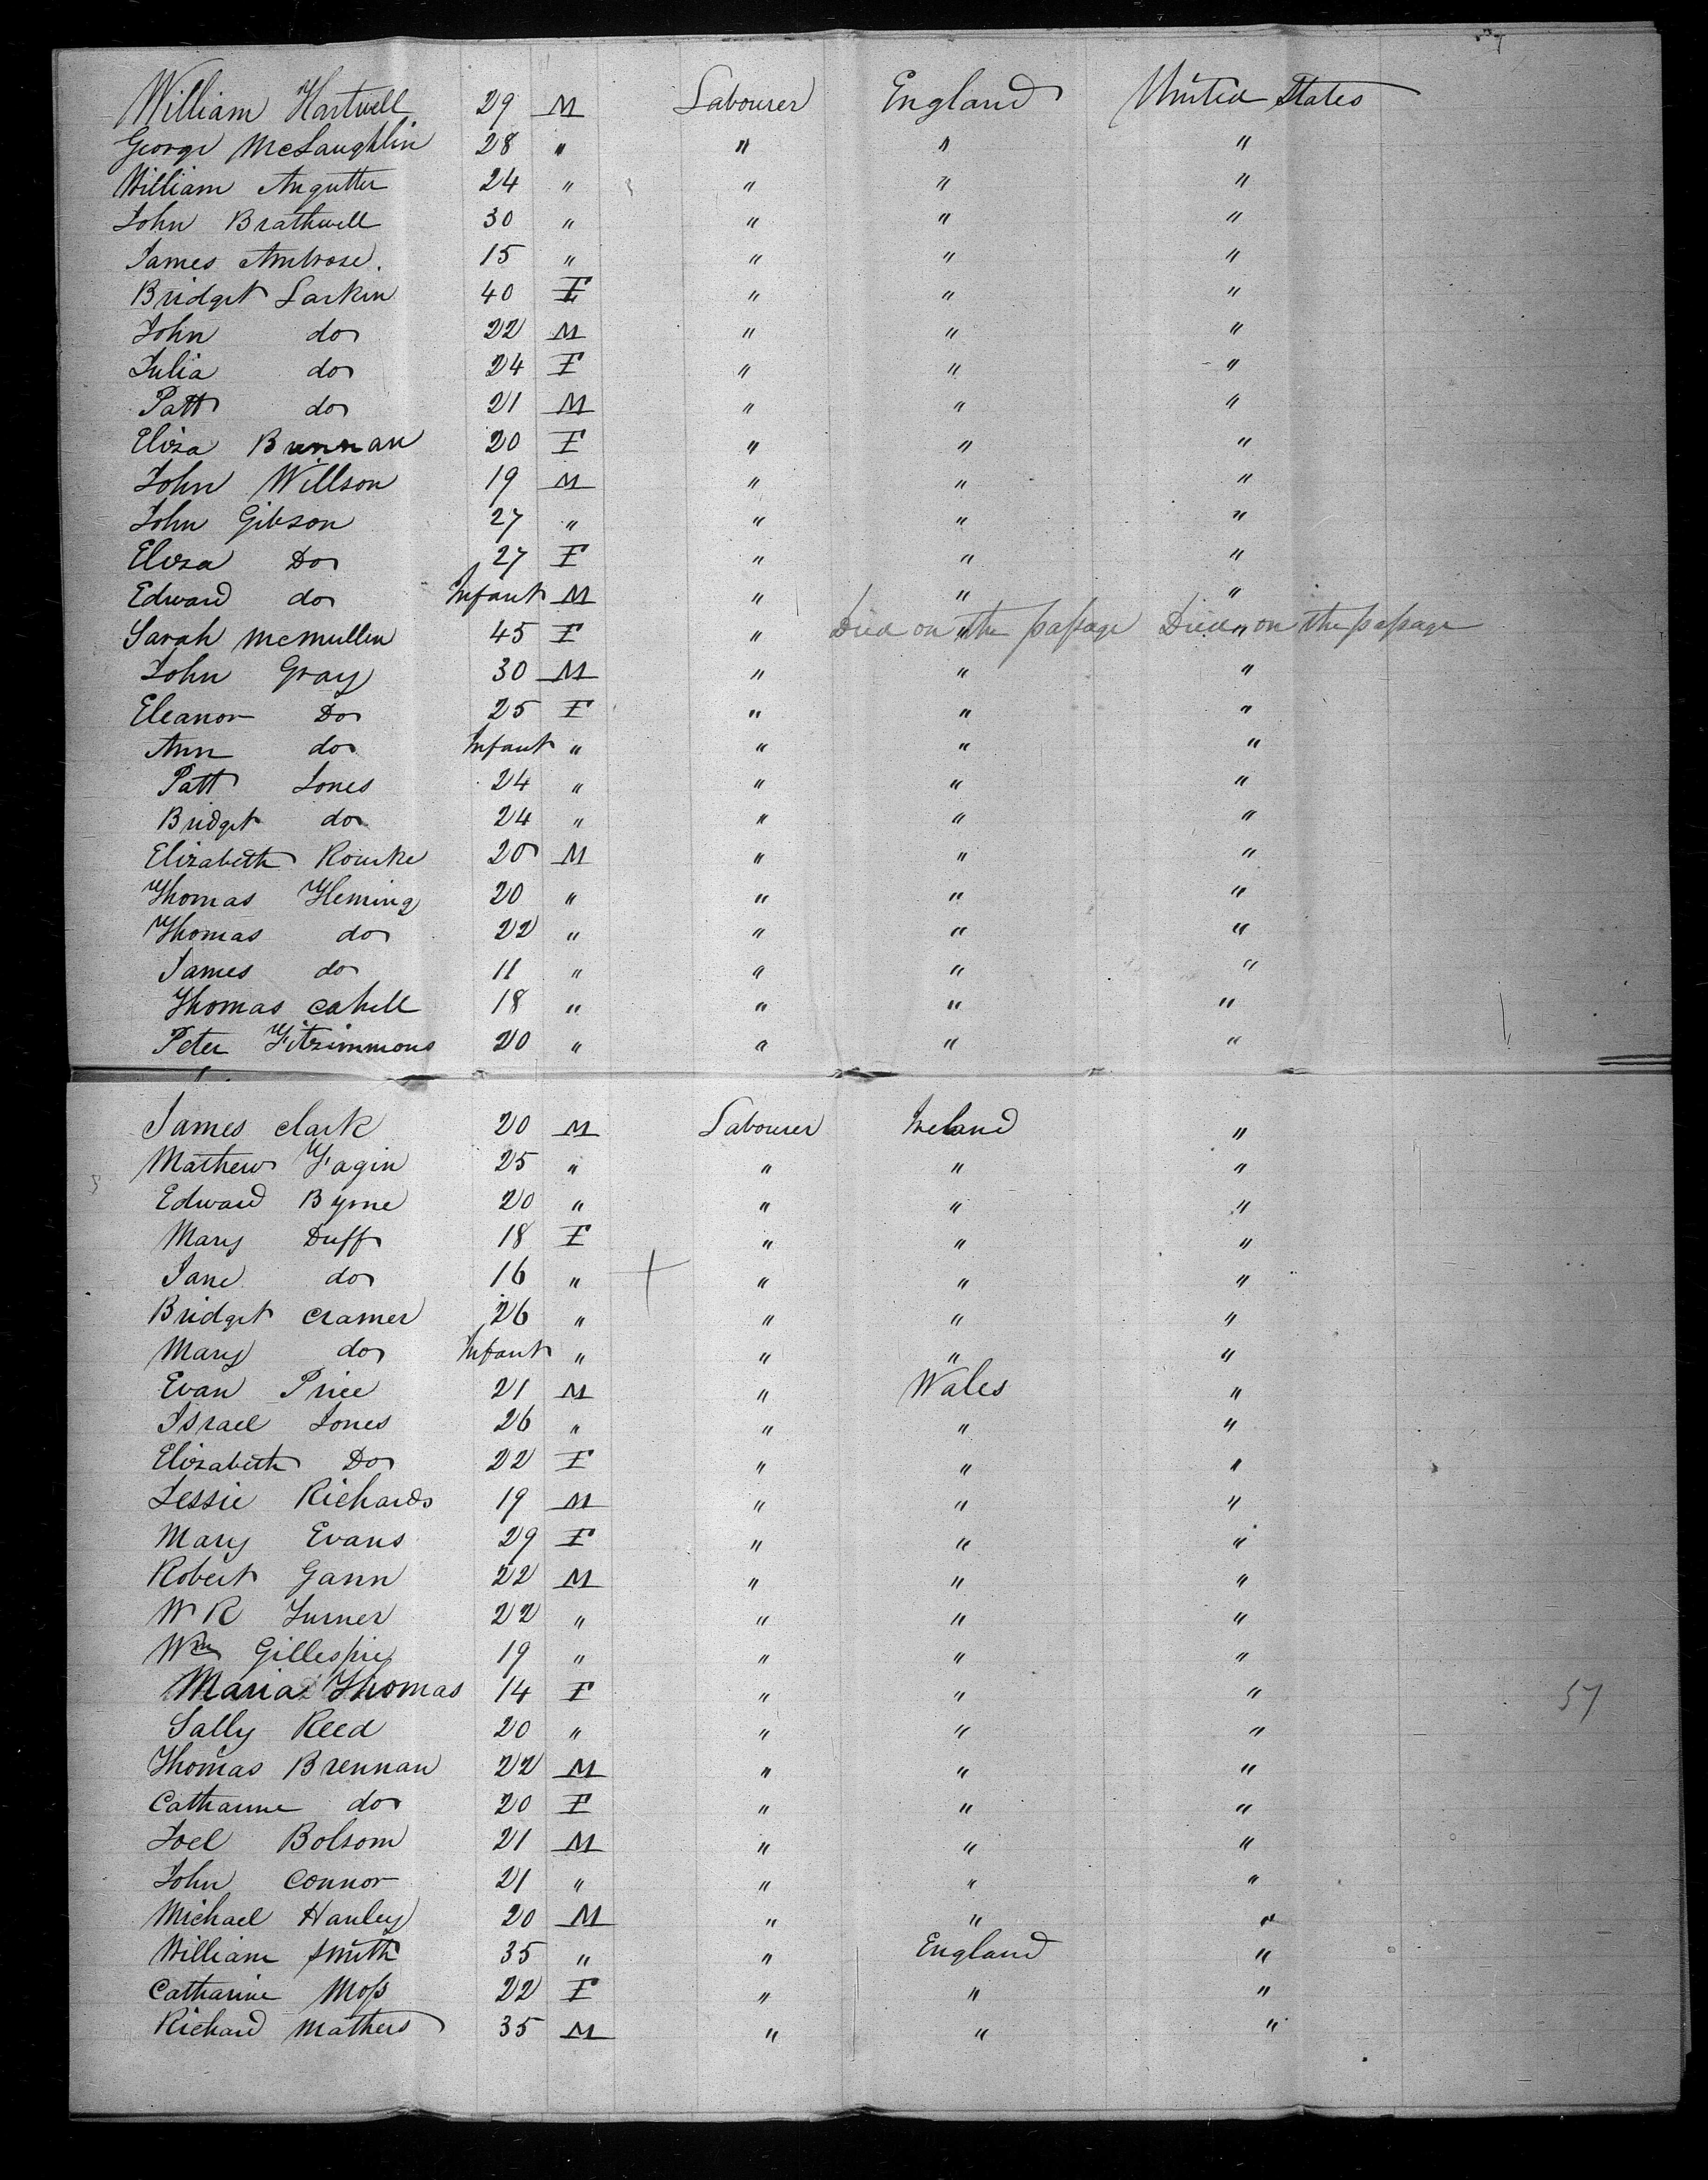 William Hartwell 29 M Labourer England United States
George McLaughlin 28 " " " "
William Angutter 24 " " " "
John Brathwell 30 " " " "
James Ambrose. 15 " " " "
Bridget Larkin 40 F " " "
John do 22 M " " "
Julia do 24 F " " "
Patt do 21 M " " "
Eliza Brennan 20 F " " "
John Willson 19 M " " "
John Gibson 27 " " " "
Eliza Do 27 F " " "
Edward do Infant M " " "
Sarah McMullen 45 F " " Died on the passage " Died on the passage
John Gray 30 M " " "
Eleanor Do 25 F " " "
Ann do Infant " " " "
Patt Jones 24 " " " "
Bridget do 24 " " " "
Elizabeth Rourke 20 M " " "
Thomas Fleming 20 " " " "
Thomas do 22 " " " "
James do 11 " " " "
Thomas Cahill 18 " " " "
Peter Fitzimmons 20 " " " "
James Clark 20 M Labourer Ireland "
Mathew Fagin 25 " " " "
Edward Byrne 20 " " " "
Mary Duff 18 F " " "
Jane do 16 " " " "
Bridget Cramer 26 " " " "
Mary do Infant " " " "
Evan Price 21 M " Wales "
Israel Jones 26 " " " "
Elizabeth Do 22 F " " "
Jessie Richards 19 M " " "
Mary Evans 29 F " " "
Robert Gann 22 M " " "
W R Turner 22 " " " "
Wm Gillespie 19 " " " "
Maria Thomas 14 F " " " 57
Sally Reed 20 " " " "
Thomas Brennan 22 M " " "
Catharine do 20 F " " "
Joel Bolsom 21 M " " "
John Connor 21 " " " "
Michael Hanley 20 M " " "
William Smith 35 " " England "
Catharine Moss 22 F " " "
Richard Mathers 35 M " " "